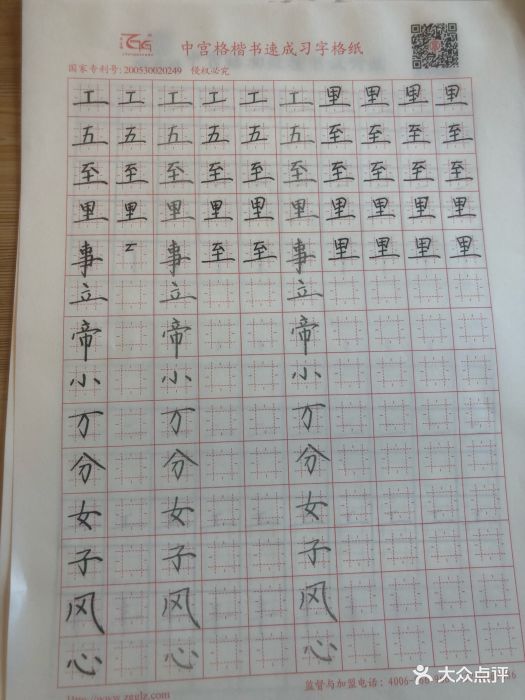 中宫格楷书速成习字格纸
国家专利号: 200530020249 侵权必究
工 工 工 工 工 工 里 里 里 里
五 五 五 五 五 五 至 至 至 至
至 至 至 至 至 至 至 至 至 至
里 里 里 里 里 里 里 里 里 里
事 事 至 至 事 里 里 里 里
立 立 立
帝 帝 帝
小 小 小
万 万 万
分 分 分
女 女 女
子 子 子
风 风 风
心 心 心
监督与加盟电话: 4006
大众点评